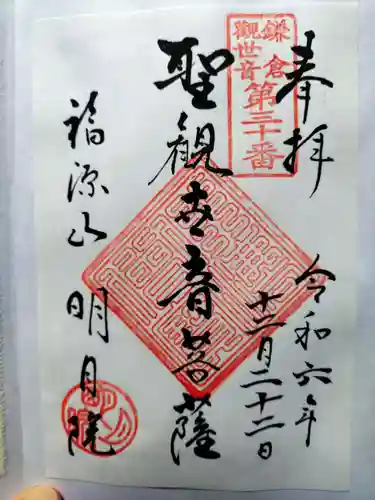 奉拝
鎌倉
観世音
第三十番
令和六年
十二月二十二日
聖観世音菩薩
福源山 明月院